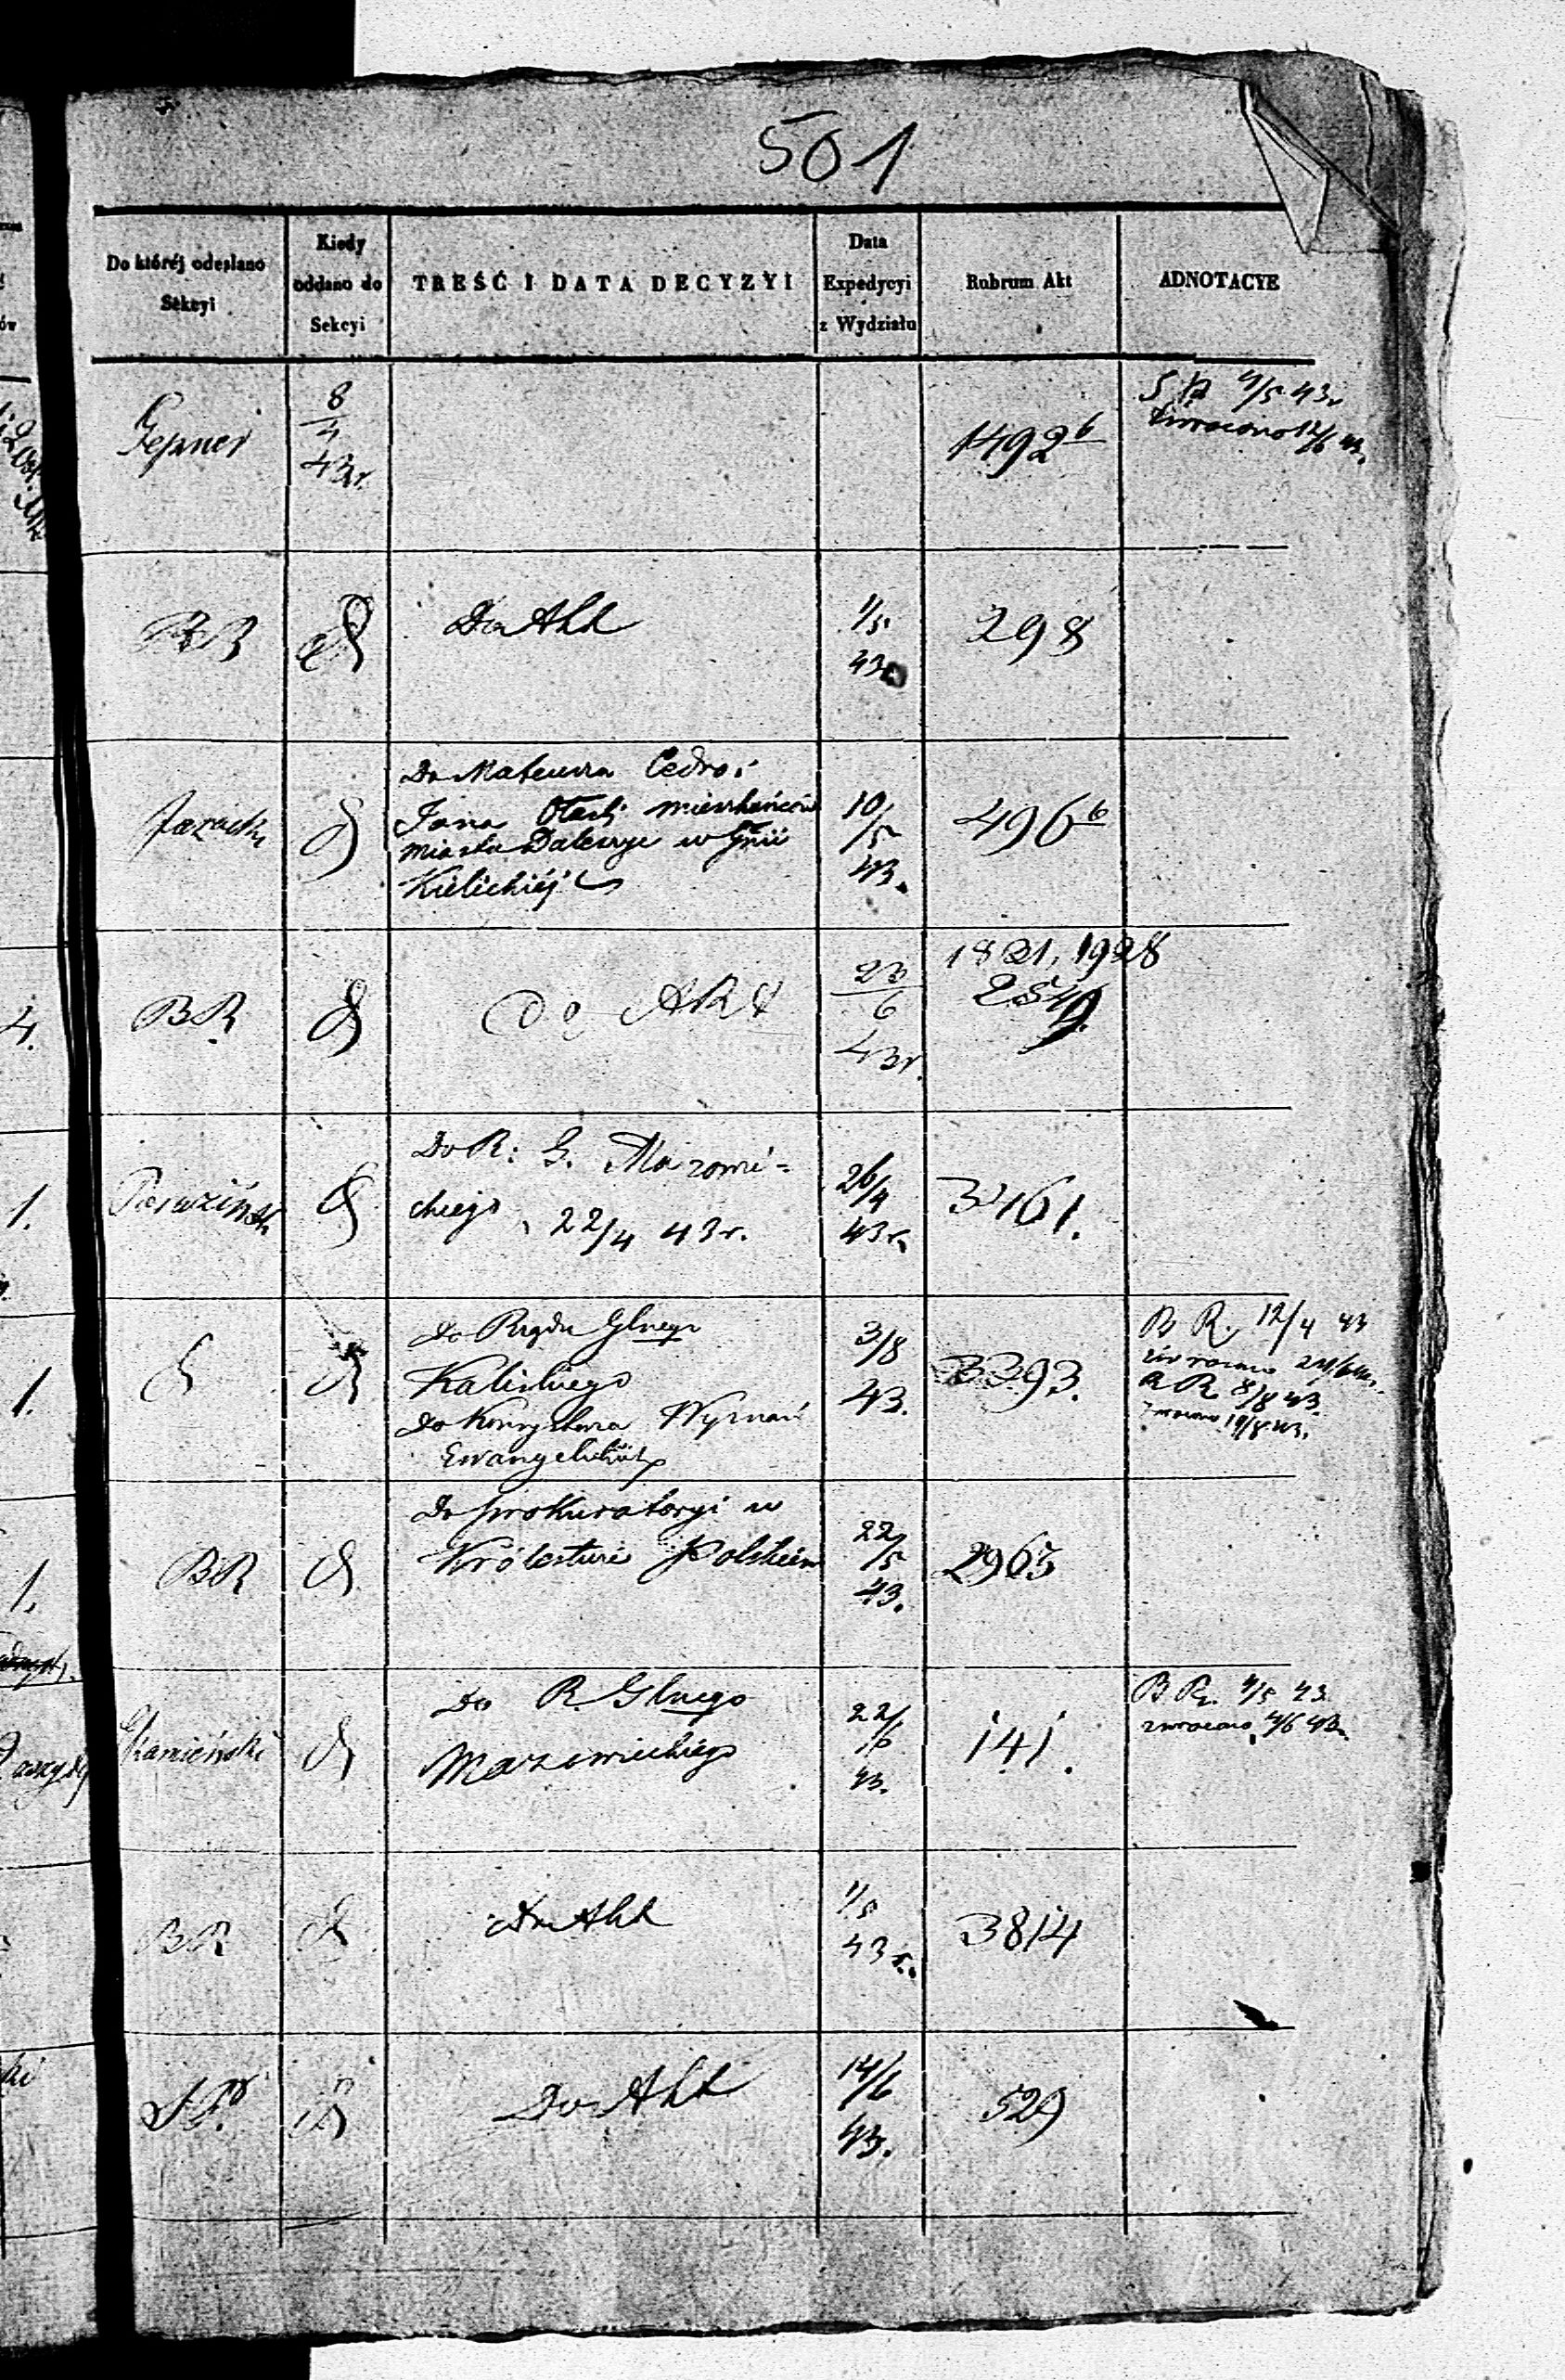 501
Do któréj odesłano
Sekcyi
Kiedy
oddano do
Sekcyi
TREŚĆ I DATA DECYZYI
Data
Expedycyi
z Wydziału
Rubrum Akt
ADNOTACYE
Gepner
8/4
43r.
1492 6
4/5 43r
zwrócono 12/6 43.
BR
Do Akt
1/5
43
298
Do Mateusza Cedro i
Jana mieszkańców
miasta Daleszyc w Gnii
Kieleckiéj
10/5
43.
496 6
BR
Do Akt
23/6
43r.
1821, 1928
2549.
Do R: G. Mazowie=
ckiego, 22/4 43r.
26/4
43r.
3161.
Do Rządu Glnego
Kaliskiego
Do Konsystorza Wyznań
Ewangelickich
3/8
43.
3393.
B R. 12/4 43
zwrócono
B R 8/8 43.
zwrócono 19/8 43.
BR
Do prokuratoryi w
Królestwie Polskiem
22/5
43.
2963
Kamieński
Do R. Glnego
Mazowieckiego
22/6
43.
141.
B R. 4/5 43
zwrócono 4/6 43.
BR
Do Akt
1/5
43 r.
3814
Do Akt
14/6
43.
529